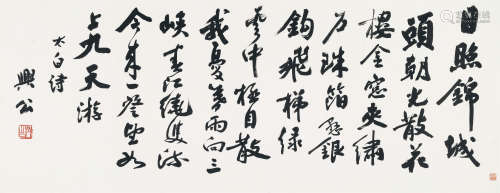 日照錦城
頭朝光散花
樓金窗夾繡
戶珠箔懸銀
鉤飛梯綠
雲中極目散
我憂暮雨向三
峽春江繞雙流
今來一登望如
上九天游
太白詩
興公